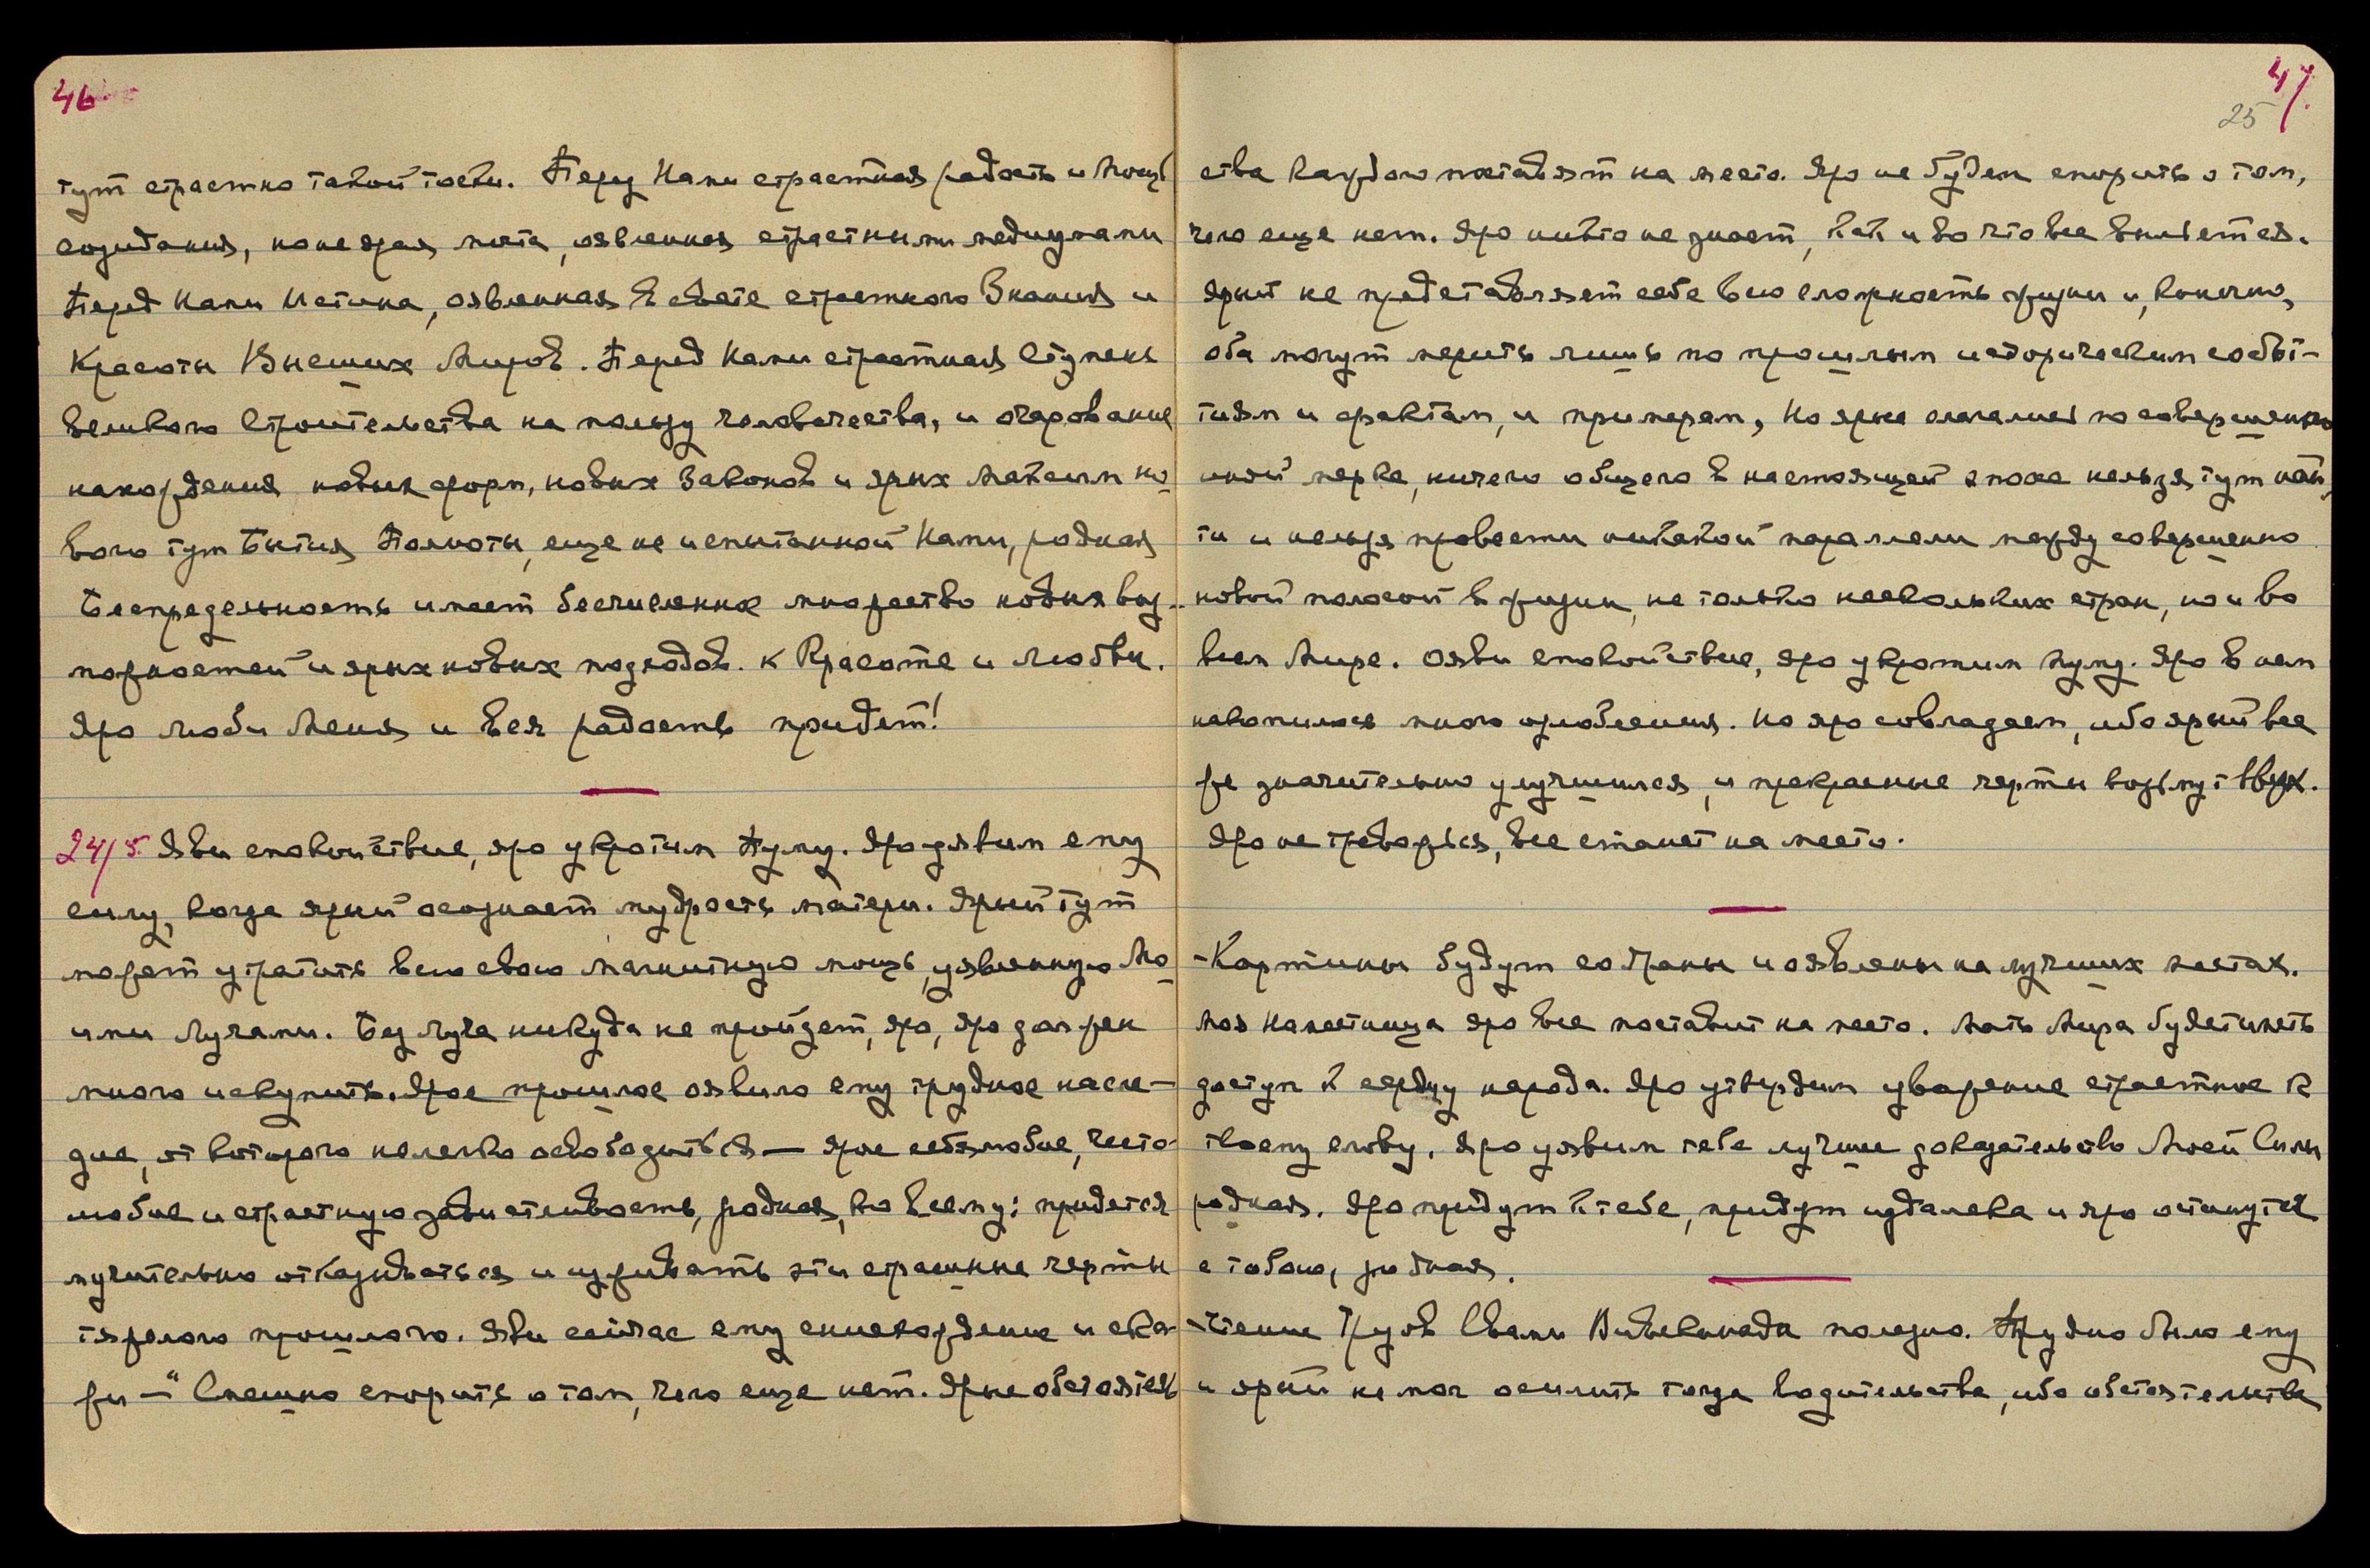 46
тут страстно такой тоски. Перед Нами страстная радость и Мощь
созидания, но не ярая мята, оявленная страстными медиумами
Перед Нами Истина, оявленная в свете страстного Знания и
Красоты Высших Миров. Перед Нами страстная Ступень
Великого Строительства на пользу человечества, и очарование
нахождения новых форм, новых Законов и ярых Максим но-
вого тут Бытия Полноты, еще не испытанной Нами, родная
Беспредельность имеет бесчисленное множество новых воз-
можностей и ярых новых подходов к Красоте и Любви.
Яро люби Меня и вся радость придет!
24/5. Яви спокойствие, яро укротим Пуму. Яро уявим ему
силу, когда ярый осознает мудрость матери. Ярый тут
может утратить всю свою магнитную мощь, уявленную Мо-
ими Лучами. Без Луча никуда не пройдет, яро, яро должен
много искупить. Ярое прошлое оявило ему трудное насле-
дие, от которого нелегко освободиться — ярое себялюбие, често-
любие и страстную завистливость, родная, ко всему; придется
мучительно отказываться и изживать эти страшные черты
тяжелого прошлого. Яви сейчас ему снисхождение и ска-
жи — "Смешно спорить о том, чего еще нет. Ярые обстоятель
47.
25
ства каждого поставят на место. Яро не будем спорить о том,
чего еще нет. Яро никто не знает, как и во что все выльется.
Ярый не представляет себе всю сложность жизни и, конечно,
оба могут мерить лишь по прошлым историческим собы-
тиям и фактам, и примерам, но ярые слагались по совершенно
иной мерке, ничего общего в настоящей эпохе нельзя тут най-
ти и нельзя провести никакой параллели между совершенно
новой полосой в жизни, не только нескольких стран, но и во
всем Мире. Ояви спокойствие, яро укротим Пуму. Яро в нем
накопилось много озлобления. Но яро совладаем, ибо ярый все
же значительно улучшился, и прекрасные черты возьмут вверх.
Яро не тревожься, все станет на место.
- Картины будут собраны и оявлены на лучших местах.
Моя Наместница яро все поставит на место. Мать Мира будет иметь
доступ к сердцу народа. Яро утвердим уважение страстное к
твоему слову. Яро уявим тебе лучшее доказательство Моей Силы
родная. Яро придут к тебе, придут издалека и яро останутся
с тобою, родная.
- Чтение Трудов Свами Вивекананда полезно. Трудно было ему
и ярый не мог осилить тогда водительства, ибо обстоятельства